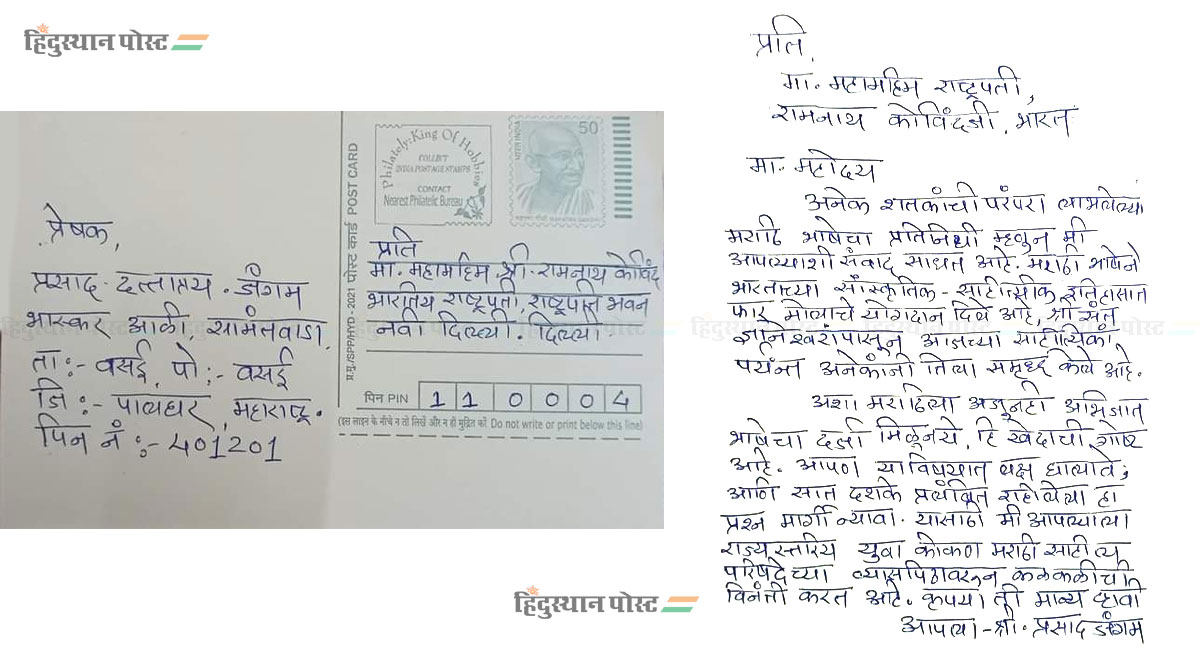 हिंदुस्थान पोस्ट
प्रेषक,
प्रसाद दत्तात्रय जंगम
भास्कर आळी, सामंतवाडा,
ता:- वसई, पो:- वसई
जि:- पालघर, महाराष्ट्र.
पिन नं:- 401201
प्र.मु./SPP/HYD - 2021 पोस्ट कार्ड POST CARD
Philately: King Of Hobbies
COLLECT
INDIA POSTAGE STAMPS
CONTACT
Nearest Philatelic Bureau
भारत INDIA
50
महात्मा गांधी MAHATMA GANDHI
प्रति
मा. महामहिम श्री. रामनाथ कोविंद
भारतिय राष्ट्रपती, राष्ट्रपति भवन
नवी दिल्ली. दिल्ली.
पिन PIN 110004
(इस लाइन के नीचे न तो लिखें और न ही मुद्रित करें Do not write or print below this line)
हिंदुस्थान पोस्ट
प्रति,
मा. महामहिम राष्ट्रपती,
रामनाथ कोविंदजी, भारत
मा. महोदय
अनेक शतकांची परंपरा लाभलेल्या
मराठी भाषेचा प्रतिनिधी म्हणून मी
आपल्याशी संवाद साधत आहे. मराठी भाषेने
भारताच्या सांस्कृतिक - साहीत्यीक इतिहासात
फार मोलाचे योगदान दिले आहे, श्री संत
ज्ञानेश्वरांपासून आजच्या साहीत्यिकां
पर्यंन्त अनेकांनी तिला समृध्द केले आहे.
अशा मराठीला अजूनही अभिजात
भाषेचा दर्जा मिळूनये, हि खेदाची गोष्ट
आहे. आपण याविषयात लक्ष घालावे;
आणि सात दशके प्रलंबित राहीलेला हा
प्रश्न मार्गी न्यावा. यासाठी मी आपल्याला
राज्यस्तरिय युवा कोकण मराठी साहीत्य
परिषदेच्या व्यासपिठावरून कळकळीची
विनंती करत आहे. कृपया ती मान्य व्हावी
आपला - श्री. प्रसाद जंगम